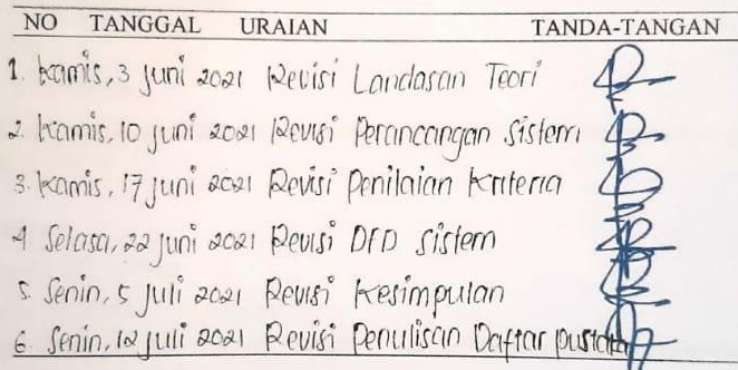 NO TANGGAL URAIAN TANDA-TANGAN
1. Kamis, 3 Juni 2021 Revisi Landasan Teori
2. Kamis, 10 Juni 2021 Revisi Perancangan Sistem
3. Kamis, 17 Juni 2021 Revisi Penilaian Kriteria
4 Selasa, 22 Juni 2021 Revisi DFD Sistem
5. Senin, 5 Juli 2021 Revisi Kesimpulan
6. Senin, 12 Juli 2021 Revisi Penulisan Daftar Pustaka